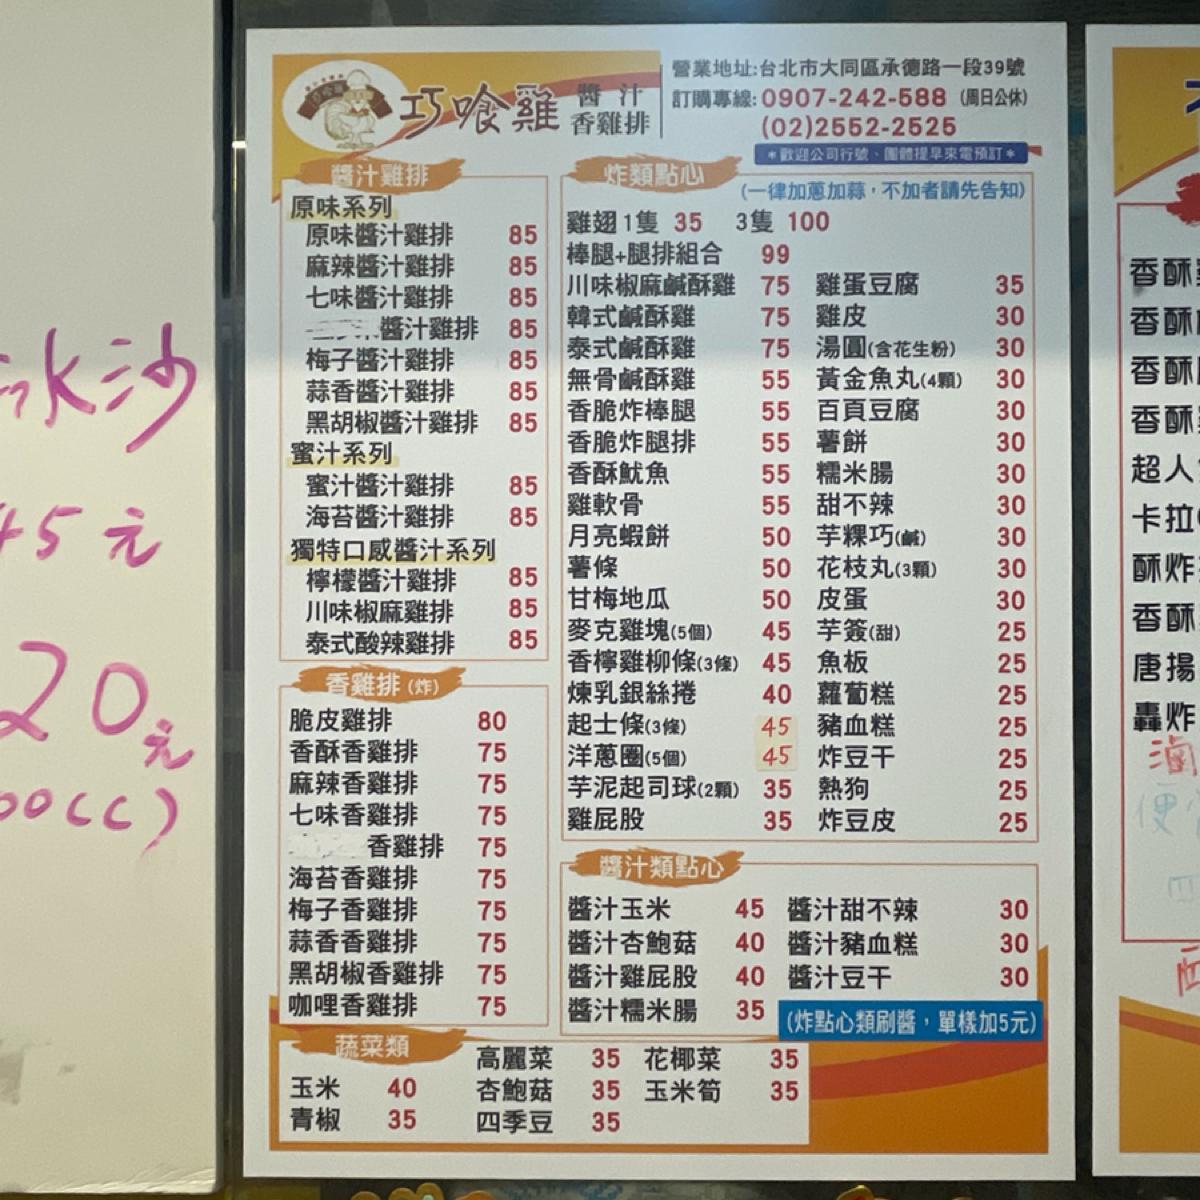 冰沙
45元
20元
00cc)
巧喰雞 醬汁香雞排
營業地址:台北市大同區承德路一段39號
訂購專線:0907-242-588 (周日公休)
(02)2552-2525
*歡迎公司行號、團體提早來電預訂*
醬汁雞排
原味系列
原味醬汁雞排 85
麻辣醬汁雞排 85
七味醬汁雞排 85
醬汁雞排 85
梅子醬汁雞排 85
蒜香醬汁雞排 85
黑胡椒醬汁雞排 85
蜜汁系列
蜜汁醬汁雞排 85
海苔醬汁雞排 85
獨特口感醬汁系列
檸檬醬汁雞排 85
川味椒麻雞排 85
泰式酸辣雞排 85
香雞排(炸)
脆皮雞排 80
香酥香雞排 75
麻辣香雞排 75
七味香雞排 75
香雞排 75
海苔香雞排 75
梅子香雞排 75
蒜香香雞排 75
黑胡椒香雞排 75
咖哩香雞排 75
炸類點心
(一律加蔥加蒜,不加者請先告知)
雞翅1隻 35 3隻 100
棒腿+腿排組合 99
川味椒麻鹹酥雞 75 雞蛋豆腐 35
韓式鹹酥雞 75 雞皮 30
泰式鹹酥雞 75 湯圓(含花生粉) 30
無骨鹹酥雞 55 黃金魚丸(4顆) 30
香脆炸棒腿 55 百頁豆腐 30
香脆炸腿排 55 薯餅 30
香酥魷魚 55 糯米腸 30
雞軟骨 55 甜不辣 30
月亮蝦餅 50 芋粿巧(鹹) 30
薯條 50 花枝丸(3顆) 30
甘梅地瓜 50 皮蛋 30
麥克雞塊(5個) 45 芋簽(甜) 25
香檸雞柳條(3條) 45 魚板 25
煉乳銀絲捲 40 蘿蔔糕 25
起士條(3條) 45 豬血糕 25
洋蔥圈(5個) 45 炸豆干 25
芋泥起司球(2顆) 35 熱狗 25
雞屁股 35 炸豆皮 25
醬汁類點心
醬汁玉米 45 醬汁甜不辣 30
醬汁杏鮑菇 40 醬汁豬血糕 30
醬汁雞屁股 40 醬汁豆干 30
醬汁糯米腸 35 (炸點心類刷醬,單樣加5元)
蔬菜類
高麗菜 35 花椰菜 35
玉米 40 杏鮑菇 35 玉米筍 35
青椒 35 四季豆 35
香酥
香酥
香酥
香酥
超人
卡拉
酥炸
香酥
唐揚
轟炸
滷
便
四